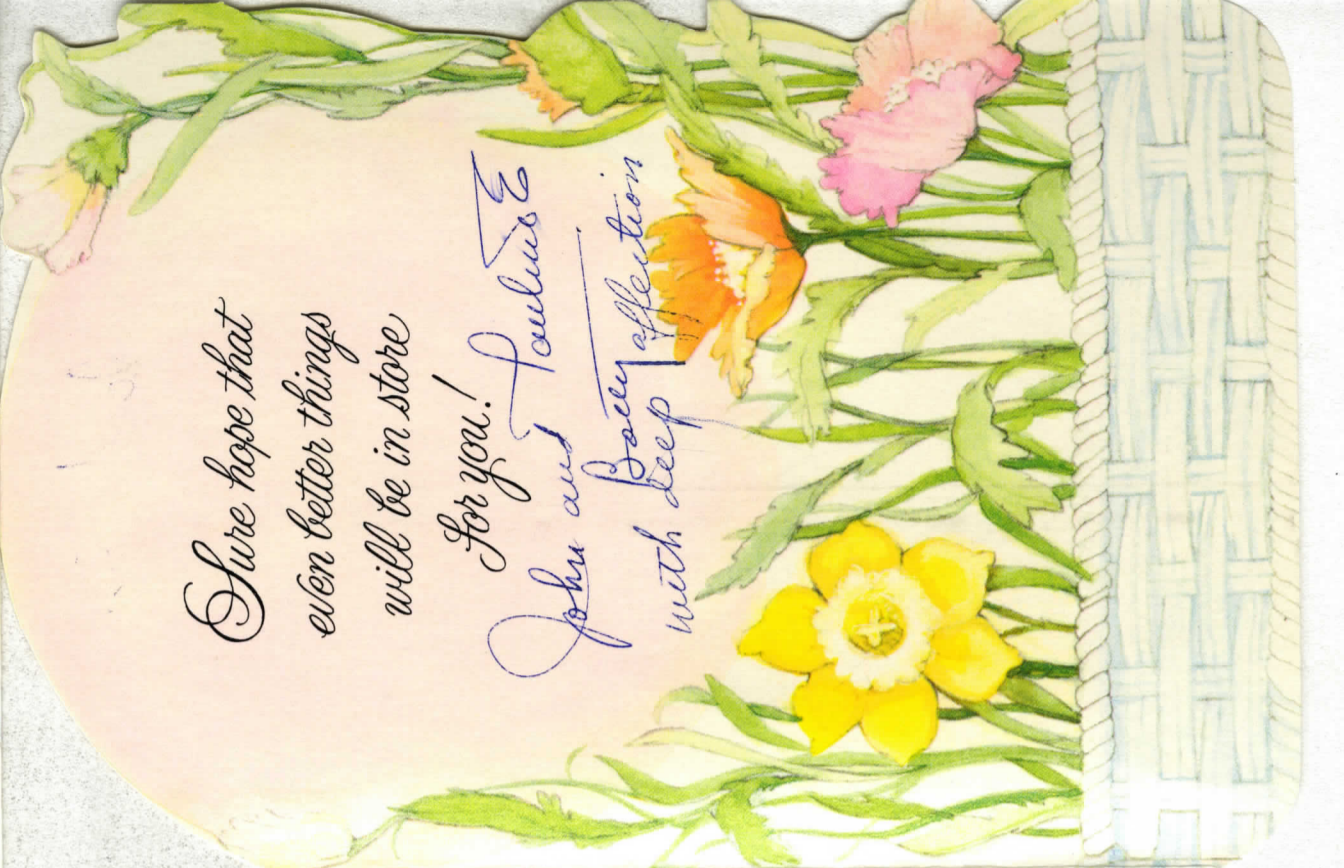 Sure hope that
even better things
will be in store
for you!
John and Pauline
with deep affection